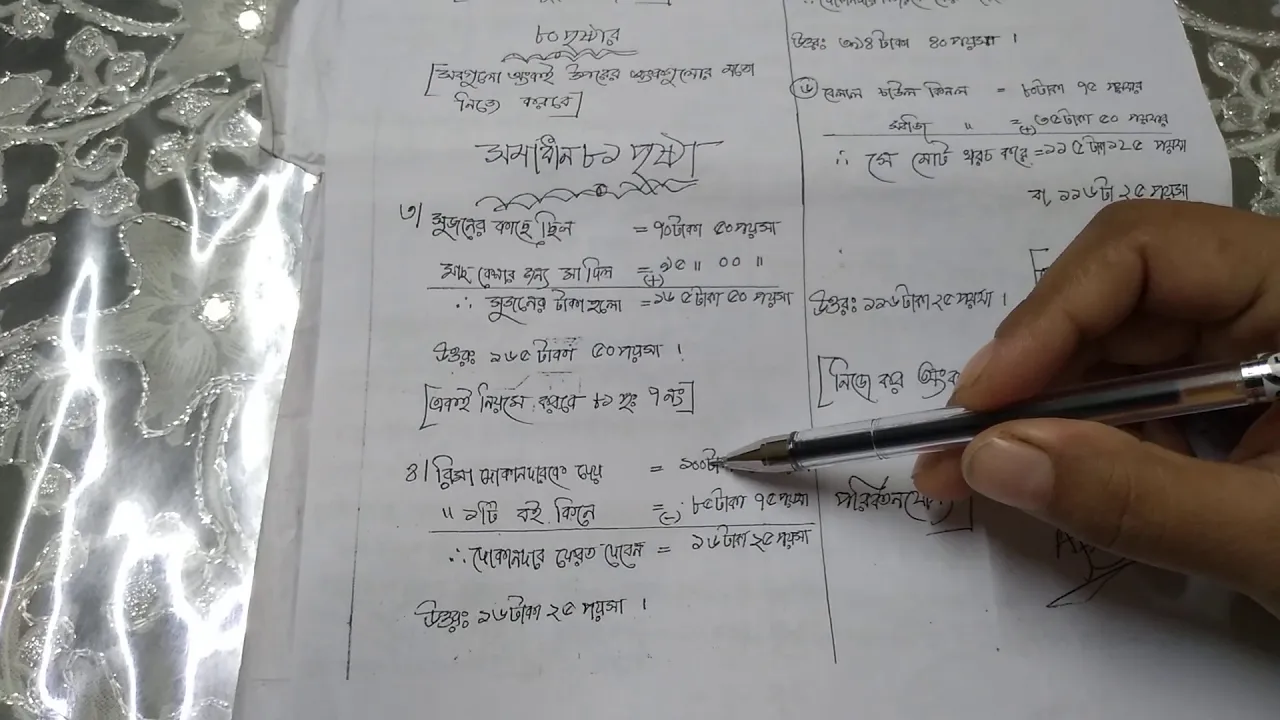 ৮০ পৃষ্ঠার
[সবগুলো অংকই উপরের অংকগুলোর মতো
নিজে করবে]
সমাধান ৮১ পৃষ্ঠা
৩| সুজনের কাছে ছিল = ৭০টাকা ৫০পয়সা
মাছ কেনার জন্য মা দিল = (+) ৯৫ " ০০ "
∴ সুজনের টাকা হলো = ১৬৫টাকা ৫০ পয়সা
উত্তরঃ ১৬৫টাকা ৫০পয়সা ।
[একই নিয়মে করবে ৮১ পৃঃ ৭ নং]
৪| রিমা দোকানদারকে দেয় = ১০০টা
" ১টি বই কিনে = (-) ৮৫টাকা ৭৫পয়সা
∴ দোকানদার ফেরত দেবেন = ১৬টাকা ২৫পয়সা
উত্তরঃ ১৬টাকা ২৫ পয়সা ।
উত্তরঃ ৩১৪টাকা ৪০পয়সা ।
৬ বেলাল চাউল কিনল = ৮০টাকা ৭৫ পয়সার
সবজি " = (+) ৩৫টাকা ৫০ পয়সার
∴ সে মোট খরচ করে = ১১৫টাকা ১২৫ পয়সা
বা, ১১৬টা ২৫পয়সা
উত্তরঃ ১১৬টাকা ২৫পয়সা ।
[নিজে কর অংক
পরিবর্তন